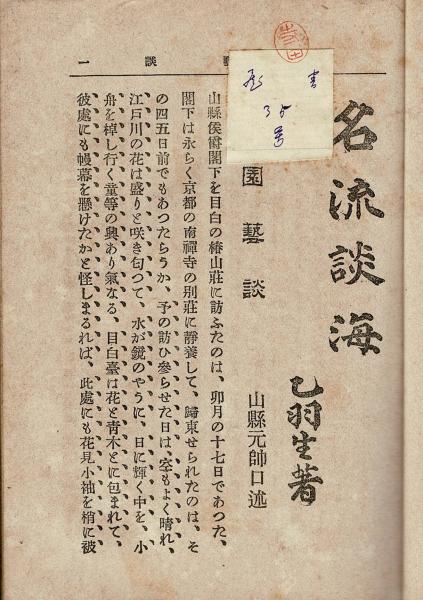 名流談海
乙羽生著
園藝談
山縣元帥口述
山縣侯爵閣下を目白の椿山莊に訪ふたのは、卯月の十七日であつた、
閣下は永らく京都の南禪寺の別莊に靜養して、歸東せられたのは、そ
の四五日前でもあつたらうか、予の訪ひ參らせた日は、空もよく晴れ、
江戸川の花は盛りと咲き匂つて、水が鏡のやうに、日に輝く中を、小
舟を棹し行く童等の興あり氣なる、目白臺は花と青木とに包まれて、
彼處にも幔幕を懸けたかと怪しまるれば、此處にも花見小袖を梢に被
談
一
書
35
号